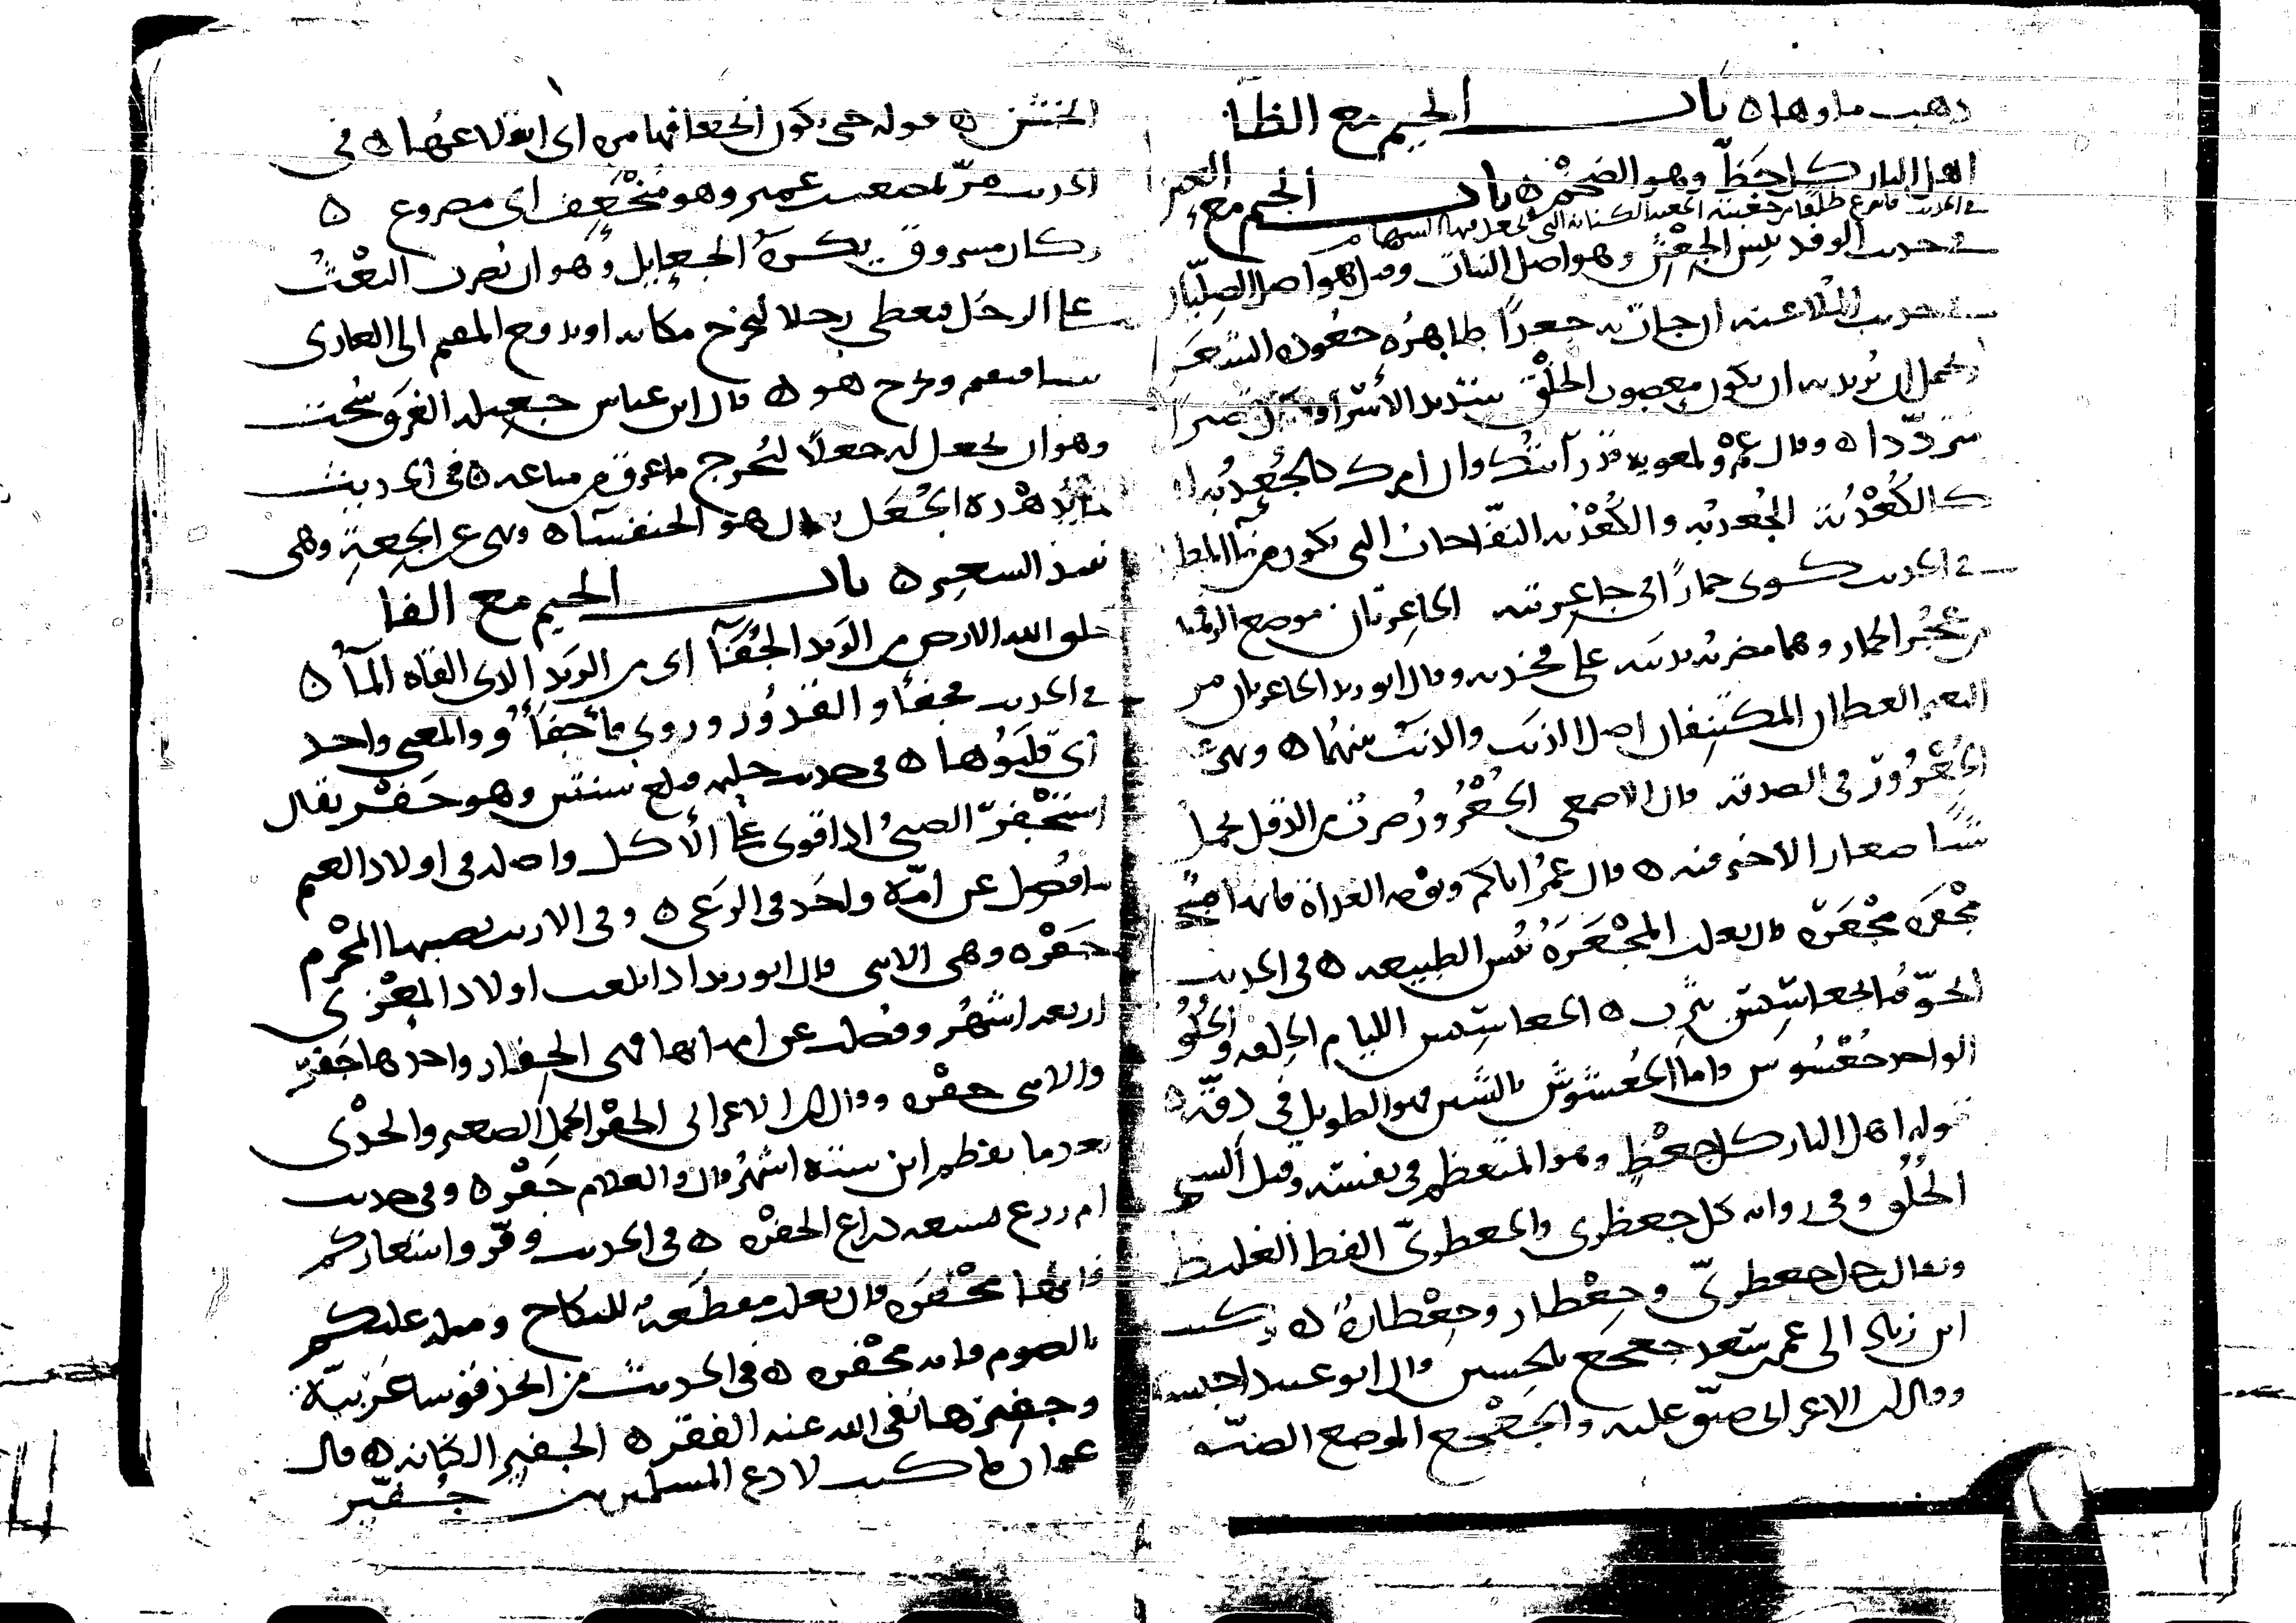 ذهب ماوها ه باب الجيم مع الظا
اهل النار كل جظ وهو الضخم ه باب الجيم مع العين
في الحديث فانتزع طلقا من جعبته الجعبه الكنانه التي تجعل فيها السهام
في حديث الوفد يبس الجعثن وهو اصل النبات وقيل هو اصل الصليان
في حديث الملاعنه ان جات به جعدا ظاهره جعوده الشعر
ويحتمل ان يريد به ان يكون معصوب الخلق شديد الاسر او قصيرا
مترددا ه وقال عمرو لمعويه قد رايتك وان امرك كالجعدبه او
كالكعدبه الجعدبه والكعدبه النفاخات التي تكون من ما المطر
في الحديث كوى حمارا في جاعرتيه الجاعرتان موضع الرقمتين
من عجز الحمار وهما مضربه بذنبه على فخذيه وقال ابو زيد الجاعرتان من
البعير العظمان المكتنفان اصل الذنب والذنب بينهما ه ونهى عن
الجعرور في الصدقه قال الاصمعي الجعرور ضرب من الدقل يحمل
شيا صغارا لا خير فيه ه وقال عمر اياكم ونومه الغداه فانها مبخره
مجفره مجعره قال ثعلب المجعره يبس الطبيعه ه في الحديث
اتخوفنا بجعاسيس يثرب ه الجعاسيس الليام الخلقه والخلق
الواحد جعسوس واما الجعشوش بالشين فهو الطويل في دقه ه
قوله اهل النار كل جعظ وهو المتعظم في نفسه وقيل السيئ
الخلق وفي روايه كل جعظري والجعظري الفظ الغليظ
ويقال رجل جعظري وجعظار وجعظاره ه وكتب
ابن زياد الى عمر بن سعد جعجع بالحسين قال ابو عبيد احبسه
وقال ابن الاعرابي ضيق عليه والجعجع الموضع الضيق
الخشن ه قوله حتى يكون انجعافها مره اى انقلاعها ه في
الحديث مر بمصعب بن عمير وهو منجعف اى مصروع ه
وكان مسروق يكره الجعايل وهو ان يضرب البعث
على الرجل فيعطي رجلا ليخرج مكانه او يدفع المقيم الى الغازي
شيا فيقيم ويخرج هو ه قال ابن عباس جعيله الغرق سحت
وهو ان يجعل له جعلا ليخرج ما غرق من متاعه ه في الحديث
يدهده الجعل قال هو الخنفسا ه ونهى عن الجعة وهي
نبيذ الشعير ه باب الجيم مع الفا
خلق الله الارض من الزبد الجفاء اى من الزبد الذي القاه الماء ه
في الحديث فجفاوا القدور وروي فاجفاوا والمعنى واحد
اي قلبوها ه في حديث حليمه فبلغ سنتين وهو جفر يقال
استجفر الصبي اذا قوي على الاكل واصله في اولاد الغنم
ما فصل عن امه واخذ في الرعي ه وفي الارنب يصيبها المحرم
جفره وهي الانثى قال ابو زيد اذا بلغت اولاد المعزى
اربعه اشهر وفصلت عن امهاتها فهي الجفار واحدها جفر
والانثى جفره وقال ابن الاعرابي الجفر الحمل الصغير والجدي
بعد ما يفطم ابن سته اشهر قال والغلام جفر ه وفي حديث
ام زرع تشبعه ذراع الجفره ه في الحديث وفروا اشعاركم
فانها مجفره قال يعني مقطعه للنكاح ومثله عليكم
بالصوم فانه مجفره ه في الحديث من اتخذ قوسا عربيه
وجفيرها نفى الله عنه الفقر ه الجفير الكنانه ه قال
عثمان ما كنت لادع المسلمين بين جفين